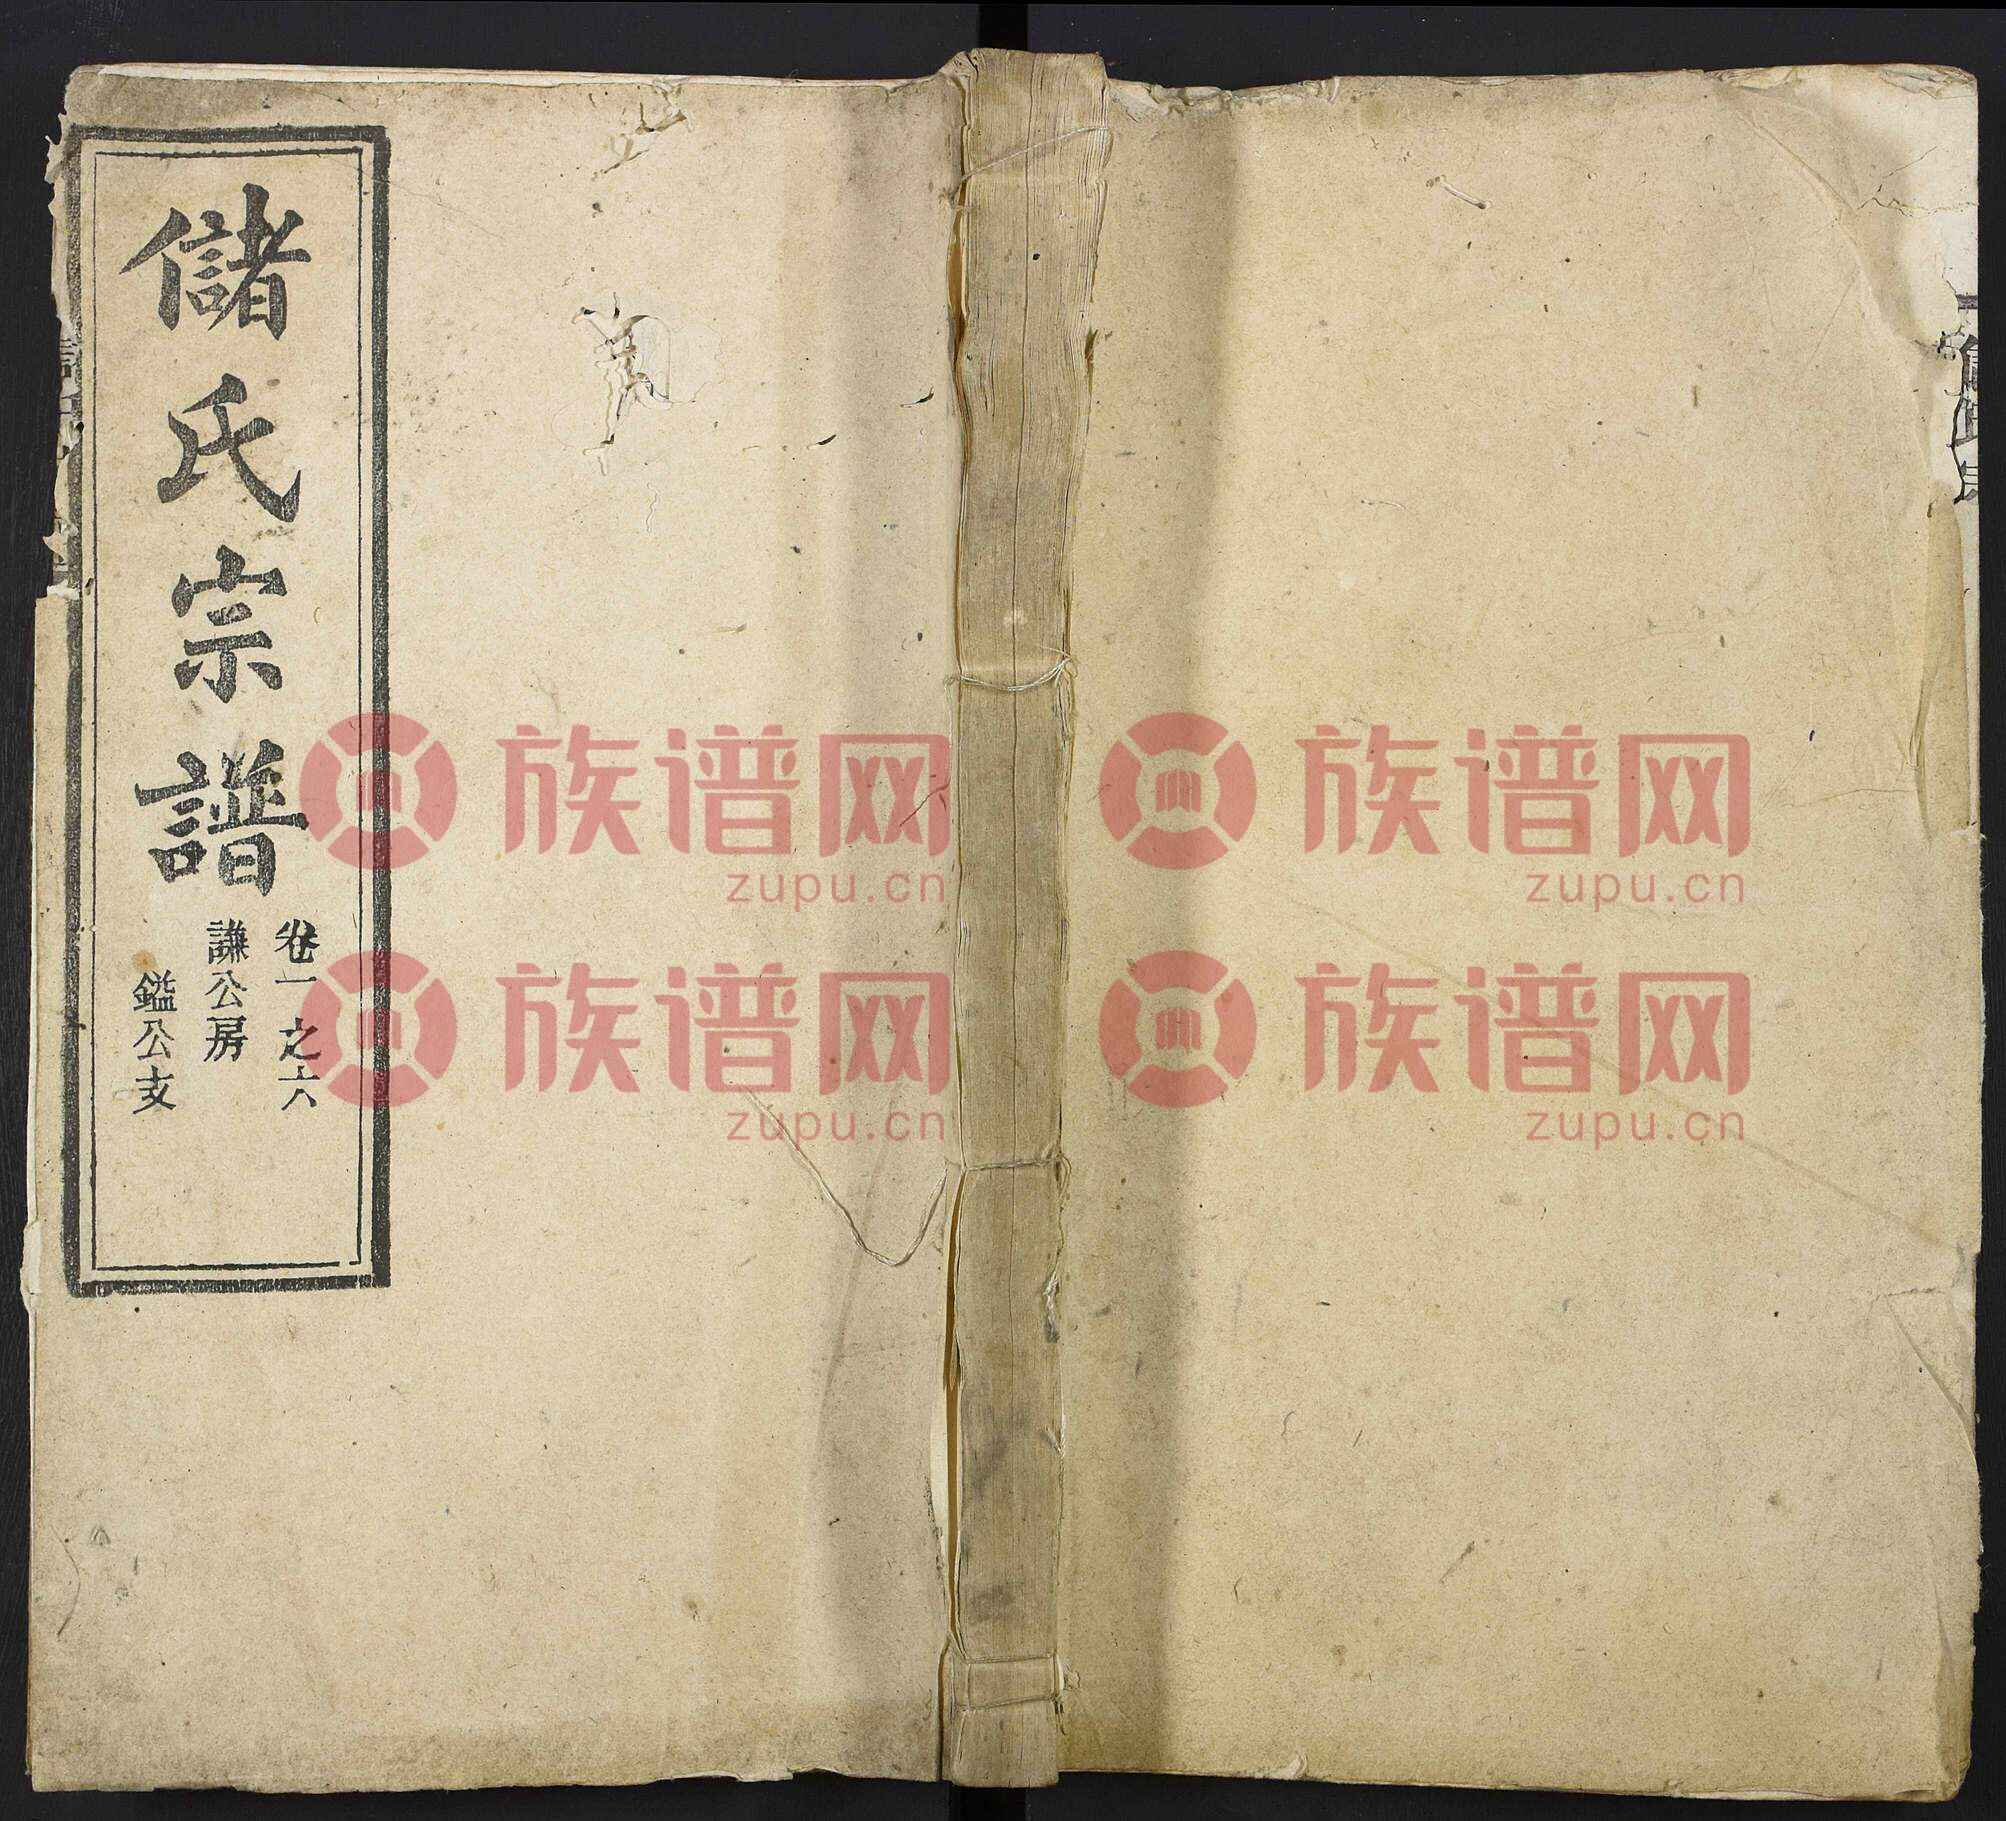 儲氏宗譜
卷一之六
謙公房
鎰公支
族谱网
zupu.cn
族谱网
zupu.cn
族谱网
zupu.cn
族谱网
zupu.cn